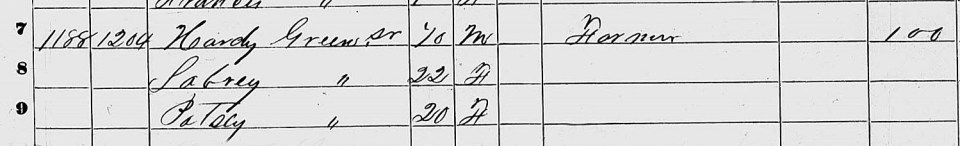 Frances "
7 1188 1204 Hardy Green Sr 70 M Farmer 100
8 Sabrey " 22 F
9 Patsey " 20 F